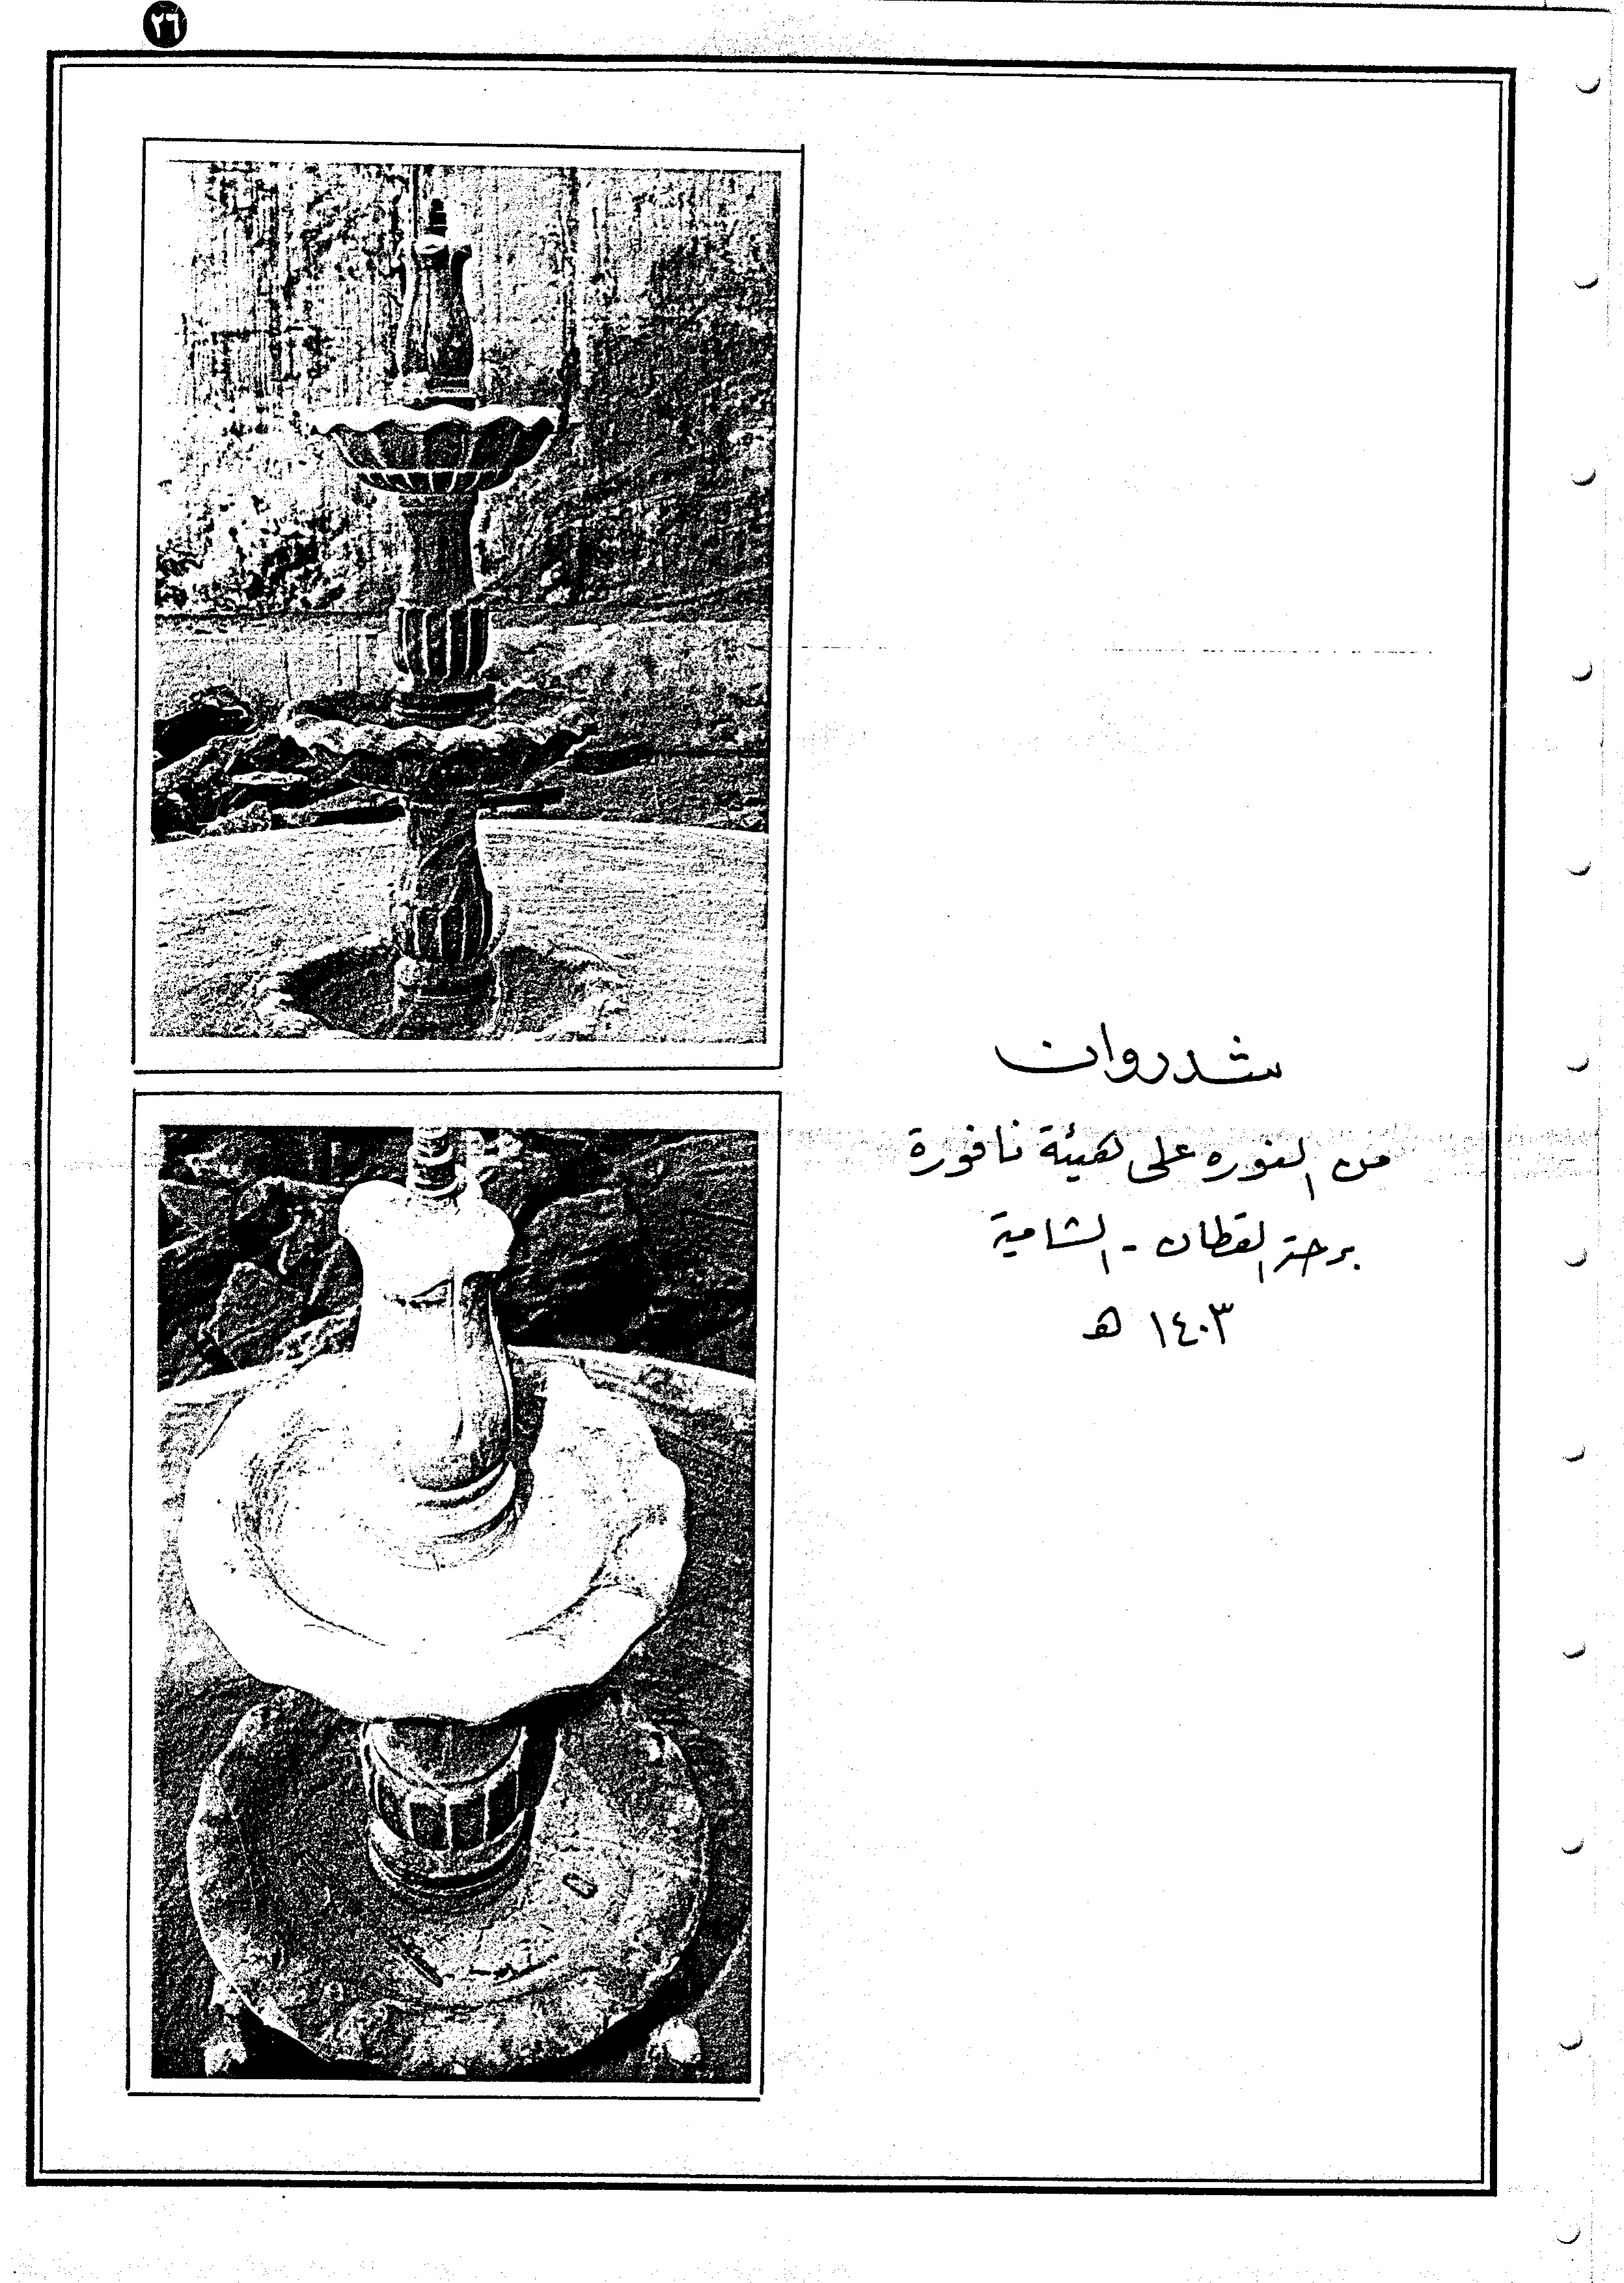 ٢٦
شدروان
من النوره على هيئة نافورة
برحة القطان - الشامية
١٤٠٣ هـ